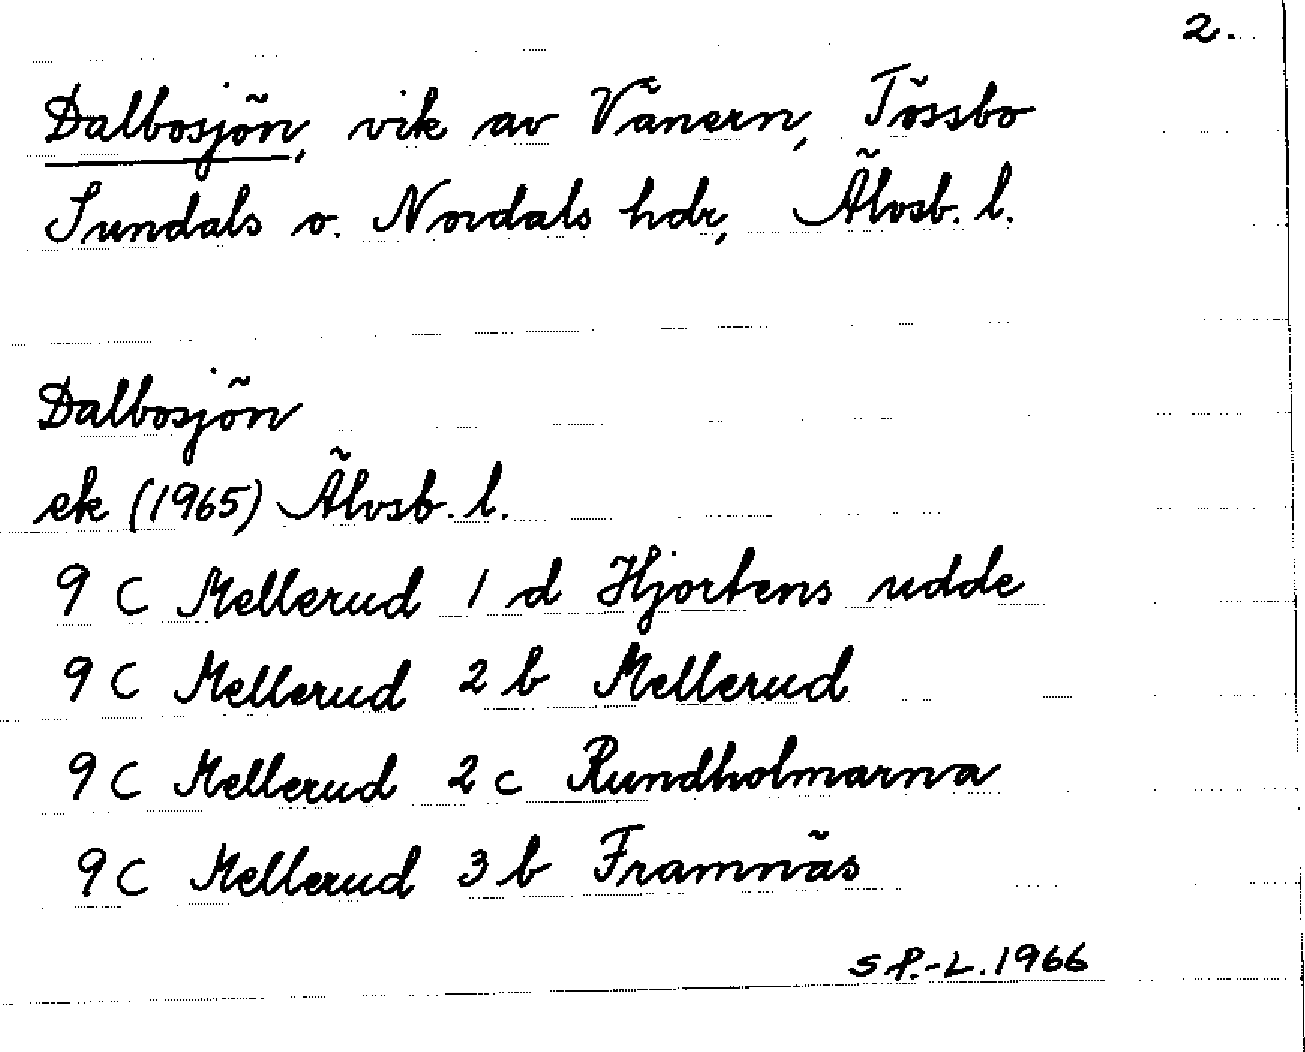 2.
Dalbosjön, vik av Vänern, Tössbo
Sundals o. Nordals hdr, Älvsb. l.
Dalbosjön
ek (1965) Älvsb. l.
9 C Mellerud 1 d Hjortens udde
9 C Mellerud 2 b Mellerud
9 C Mellerud 2 c Rundholmarna
9 C Mellerud 3 b Framnäs
S P.-L. 1966